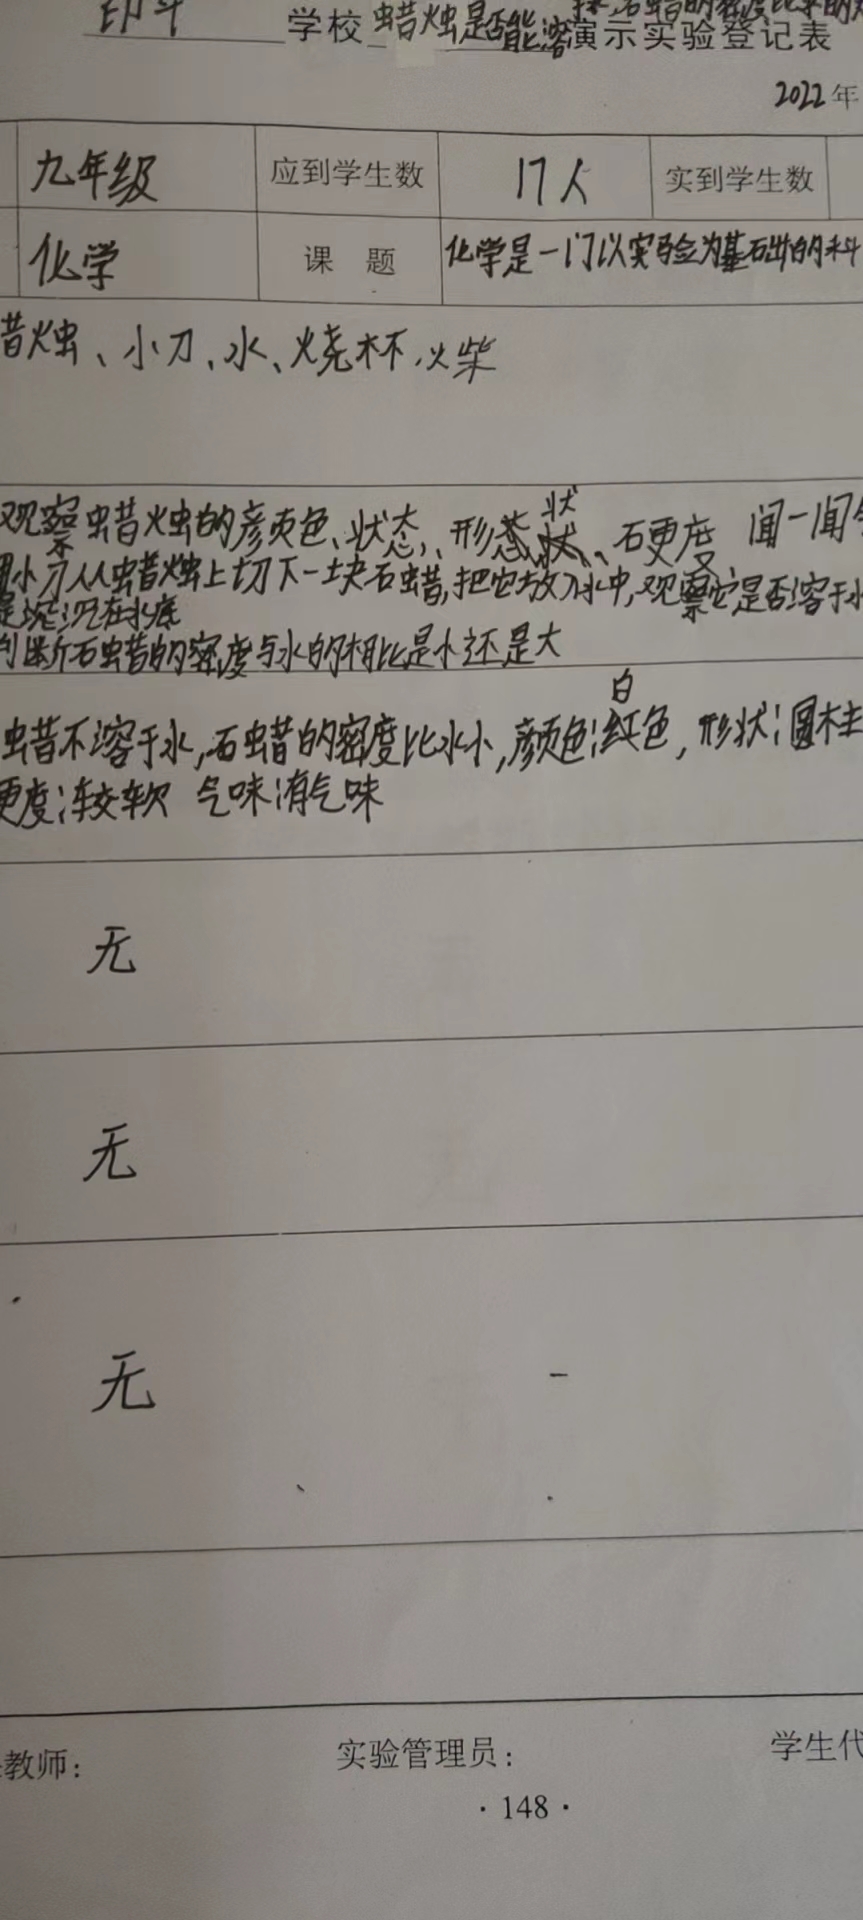 印斗 学校 蜡烛是否能溶 演示实验登记表
2022年
九年级 应到学生数 17人 实到学生数
化学 课题 化学是一门以实验为基础的科
蜡烛、小刀、水、烧杯,火柴
状
观察蜡烛的颜色、状态、形 硬度 闻一闻
小刀从蜡烛上切下一块石蜡,把它放入水中,观察它是否溶于水
是 沉在水底
判断石蜡的密度与水的相比是小还是大
白
蜡不溶于水,石蜡的密度比水小,颜色:红色,形状:圆柱
硬度:较软 气味:有气味
无
无
无
教师: 实验管理员: 学生代
·148·